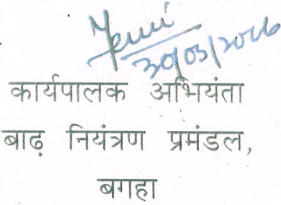 30/03/2026
कार्यपालक अभियंता
बाढ़ नियंत्रण प्रमंडल,
बगहा